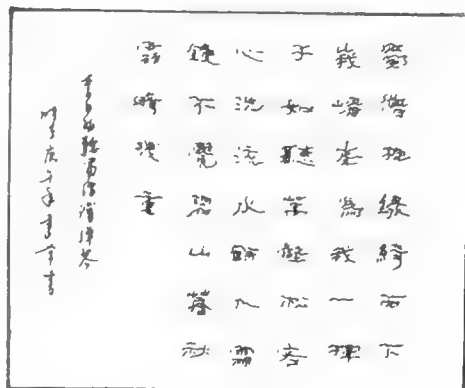 蜀僧抱綠綺西下
峩嵋峯為我一揮
手如聽萬壑松客
心洗流水餘入霜
鐘不覺碧山暮秋
雲暗幾重
李白的聽蜀僧濬彈琴
時庚午年